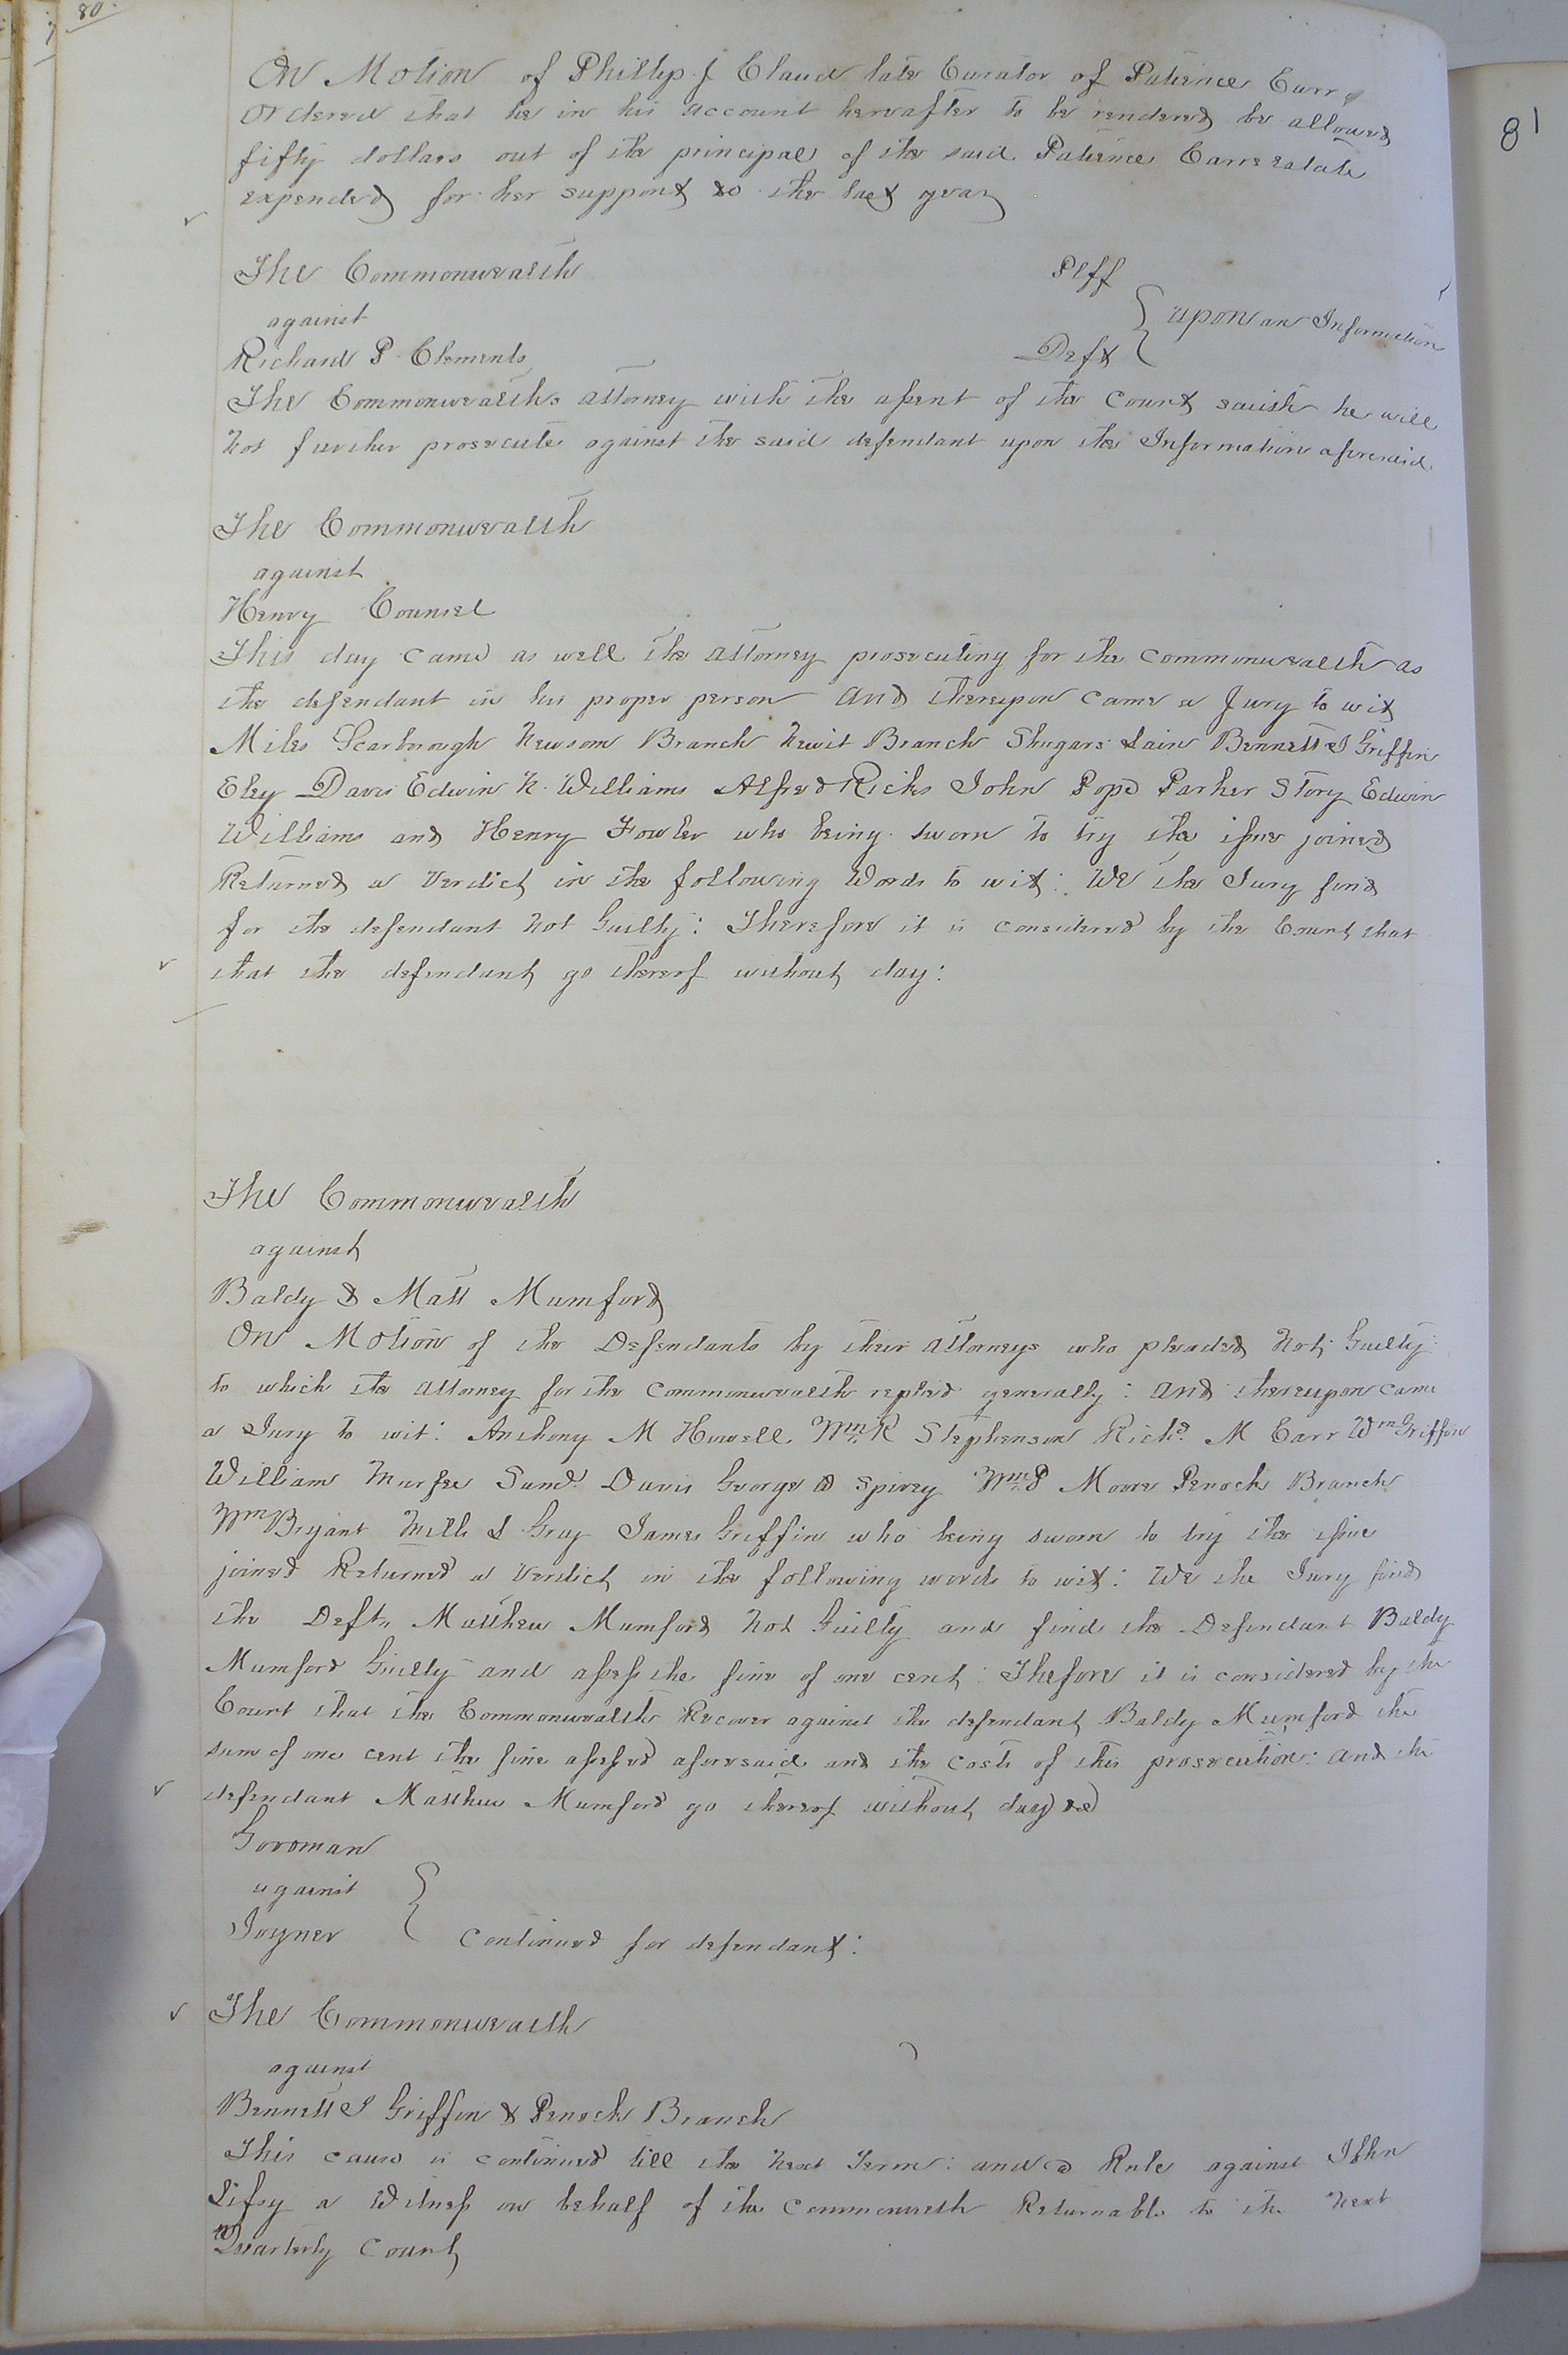 80.
81
On Motion of Phillip J Claud late Curator of Patience Carr,
Ordered that he in his account hereafter to be rendered be allowed
fifty dollars out of the principal of the said Patience Carrs estate
expended for her support &c the last year
The Commonwealth Plff
against upon an Information
Richard P Clements Deft
The Commonwealths attorney with the assent of the Court saith he will
not further prosecute against the said defendant upon the Information aforesaid.
The Commonwealth
against
Henry Counsel
This day came as well the attorney prosecuting for the commonwealth as
the defendant in his proper person and thereupon came a Jury to wit
Miles Scarborough Newsom Branch Newit Branch Shugars Lain Bennett J Griffin
Eley Davis Edwin N. Williams Alfred Ricks John Pope Parker Story Edwin
Williams and Henry Fowler who being sworn to try the issue joined
Returned a Verdict in the following Words to wit: We the Jury find
for the defendant not Guilty: Therefore it is considered by the Court that
that the defendant go thereof without day:
The Commonwealth
against
Baldy & Matt Mumford
On Motion of the Defendants by their attorneys who pleaded Not Guilty
to which the attorney for the commonwealth replied generally: and thereupon came
a Jury to wit: Anthony M Howell Wm R Stephenson Richd. M Carr Wm Griffin
William Murfee Davis George D Spivey Wm P Moore Penoch Branch
Wm Bryant Mills L Gray James Griffin who being sworn to try the issue
joined Returned a Verdict in the following words to wit: We the Jury find
the Deft,, Matthew Mumford Not Guilty and find the Defendant Baldy
Mumford Guilty and assess the fine of one cent: Thefore it is considered by the
Court that the Commonwealth Recover against the defendant Baldy Mumford the
sum of one cent the fine assessed aforesaid and the costs of this prosecution: and the
defendant Matthew Mumford go thereof without day &c
Goroman
against
Joyner Continued for defendant:
The Commonwealth
against
Bennett J Griffin & Penoch Branch
This cause is continued till the next Term: and a Rule against John
Lifsy a Witness on behalf of the commonweth Returnable to the next
Quarterly Court